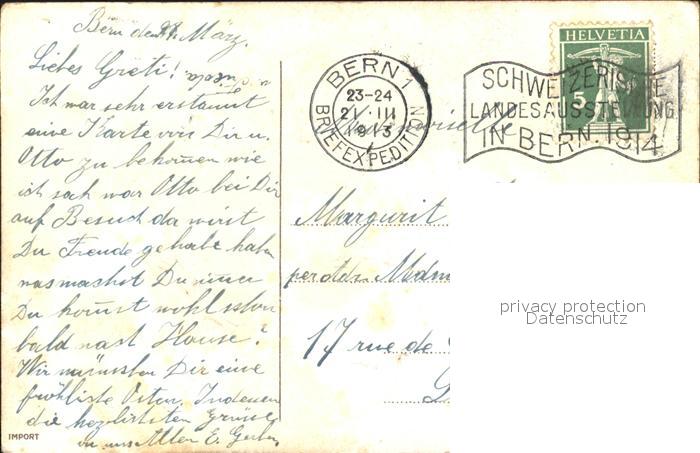 Bern den 21. März.
Liebes Greti!
Ich war sehr erstaunt
eine Karte von Dir u.
Otto zu bekomen wie
ich sach war Otto bei Dir
auf Besuch da wirst
Du Freude gehabt haben
was machst Du imer
Du komst wohl schon
bald nach Hause?
Wir wünschen Dir eine
fröhliche Ostern. Indessen
die herzlichsten Grüsse
von uns Allen E.
IMPORT
BERN 1
23-24
21·III
1913
BRIEFEXPEDITION
HELVETIA
5
SCHWEIZERISCHE
LANDESAUSSTELLUNG
IN BERN. 1914
Margurit
per adr. Mdm
17 rue de
privacy protection
Datenschutz